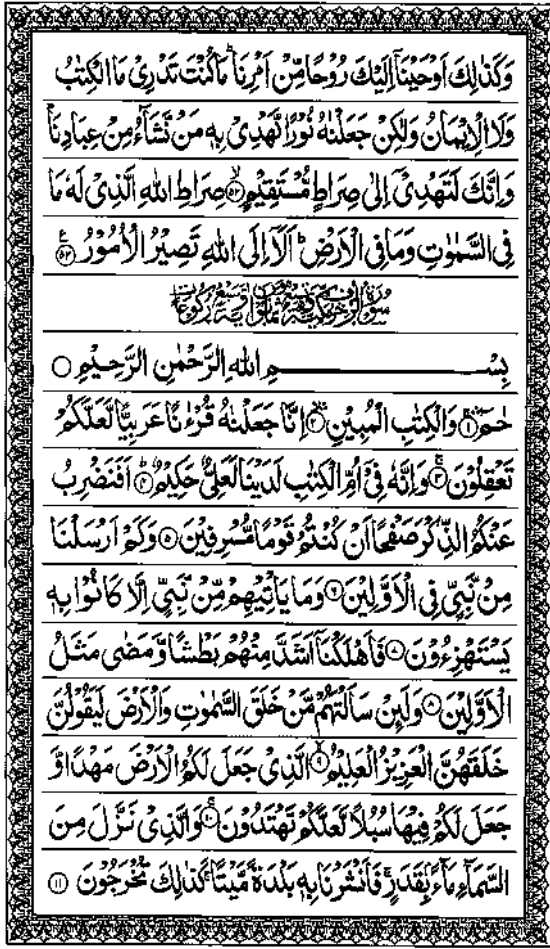 وَكَذٰلِكَ اَوْحَيْنَآ اِلَيْكَ رُوْحًا مِّنْ اَمْرِنَا ؕ مَا كُنْتَ تَدْرِىْ مَا الْكِتٰبُ
وَلَا الْاِيْمَانُ وَلٰكِنْ جَعَلْنٰهُ نُوْرًا نَّهْدِىْ بِهٖ مَنْ نَّشَآءُ مِنْ عِبَادِنَا ؕ
وَاِنَّكَ لَتَهْدِىْٓ اِلٰى صِرَاطٍ مُّسْتَقِيْمٍ ۙ‏﴿۵۲﴾ صِرَاطِ اللّٰهِ الَّذِىْ لَهٗ مَا
فِى السَّمٰوٰتِ وَمَا فِى الْاَرْضِ ؕ اَلَآ اِلَى اللّٰهِ تَصِيْرُ الْاُمُوْرُ ﴿۵۳﴾ ع
بِسْمِ اللّٰهِ الرَّحْمٰنِ الرَّحِيْمِ ○
حٰمٓ ﴿۱﴾ وَالْكِتٰبِ الْمُبِيْنِ ﴿۲﴾ اِنَّا جَعَلْنٰهُ قُرْءٰنًا عَرَبِيًّا لَّعَلَّكُمْ
تَعْقِلُوْنَ ﴿۳﴾ وَاِنَّهٗ فِىْٓ اُمِّ الْكِتٰبِ لَدَيْنَا لَعَلِىٌّ حَكِيْمٌ ﴿۴﴾ اَفَنَضْرِبُ
عَنْكُمُ الذِّكْرَ صَفْحًا اَنْ كُنْتُمْ قَوْمًا مُّسْرِفِيْنَ ﴿۵﴾ وَكَمْ اَرْسَلْنَا
مِنْ نَّبِىٍّ فِى الْاَوَّلِيْنَ ﴿۶﴾ وَمَا يَاْتِيْهِمْ مِّنْ نَّبِىٍّ اِلَّا كَانُوْا بِهٖ
يَسْتَهْزِءُوْنَ ﴿۷﴾ فَاَهْلَكْنَآ اَشَدَّ مِنْهُمْ بَطْشًا وَّمَضٰى مَثَلُ
الْاَوَّلِيْنَ ﴿۸﴾ وَلَئِنْ سَاَلْتَهُمْ مَّنْ خَلَقَ السَّمٰوٰتِ وَالْاَرْضَ لَيَقُوْلُنَّ
خَلَقَهُنَّ الْعَزِيْزُ الْعَلِيْمُ ﴿۹﴾ الَّذِىْ جَعَلَ لَكُمُ الْاَرْضَ مَهْدًا وَّ
جَعَلَ لَكُمْ فِيْهَا سُبُلًا لَّعَلَّكُمْ تَهْتَدُوْنَ ﴿۱۰﴾ وَالَّذِىْ نَزَّلَ مِنَ
السَّمَآءِ مَآءًۢ بِقَدَرٍ ۚ فَاَنْشَرْنَا بِهٖ بَلْدَةً مَّيْتًا ۚ كَذٰلِكَ تُخْرَجُوْنَ ﴿۱۱﴾